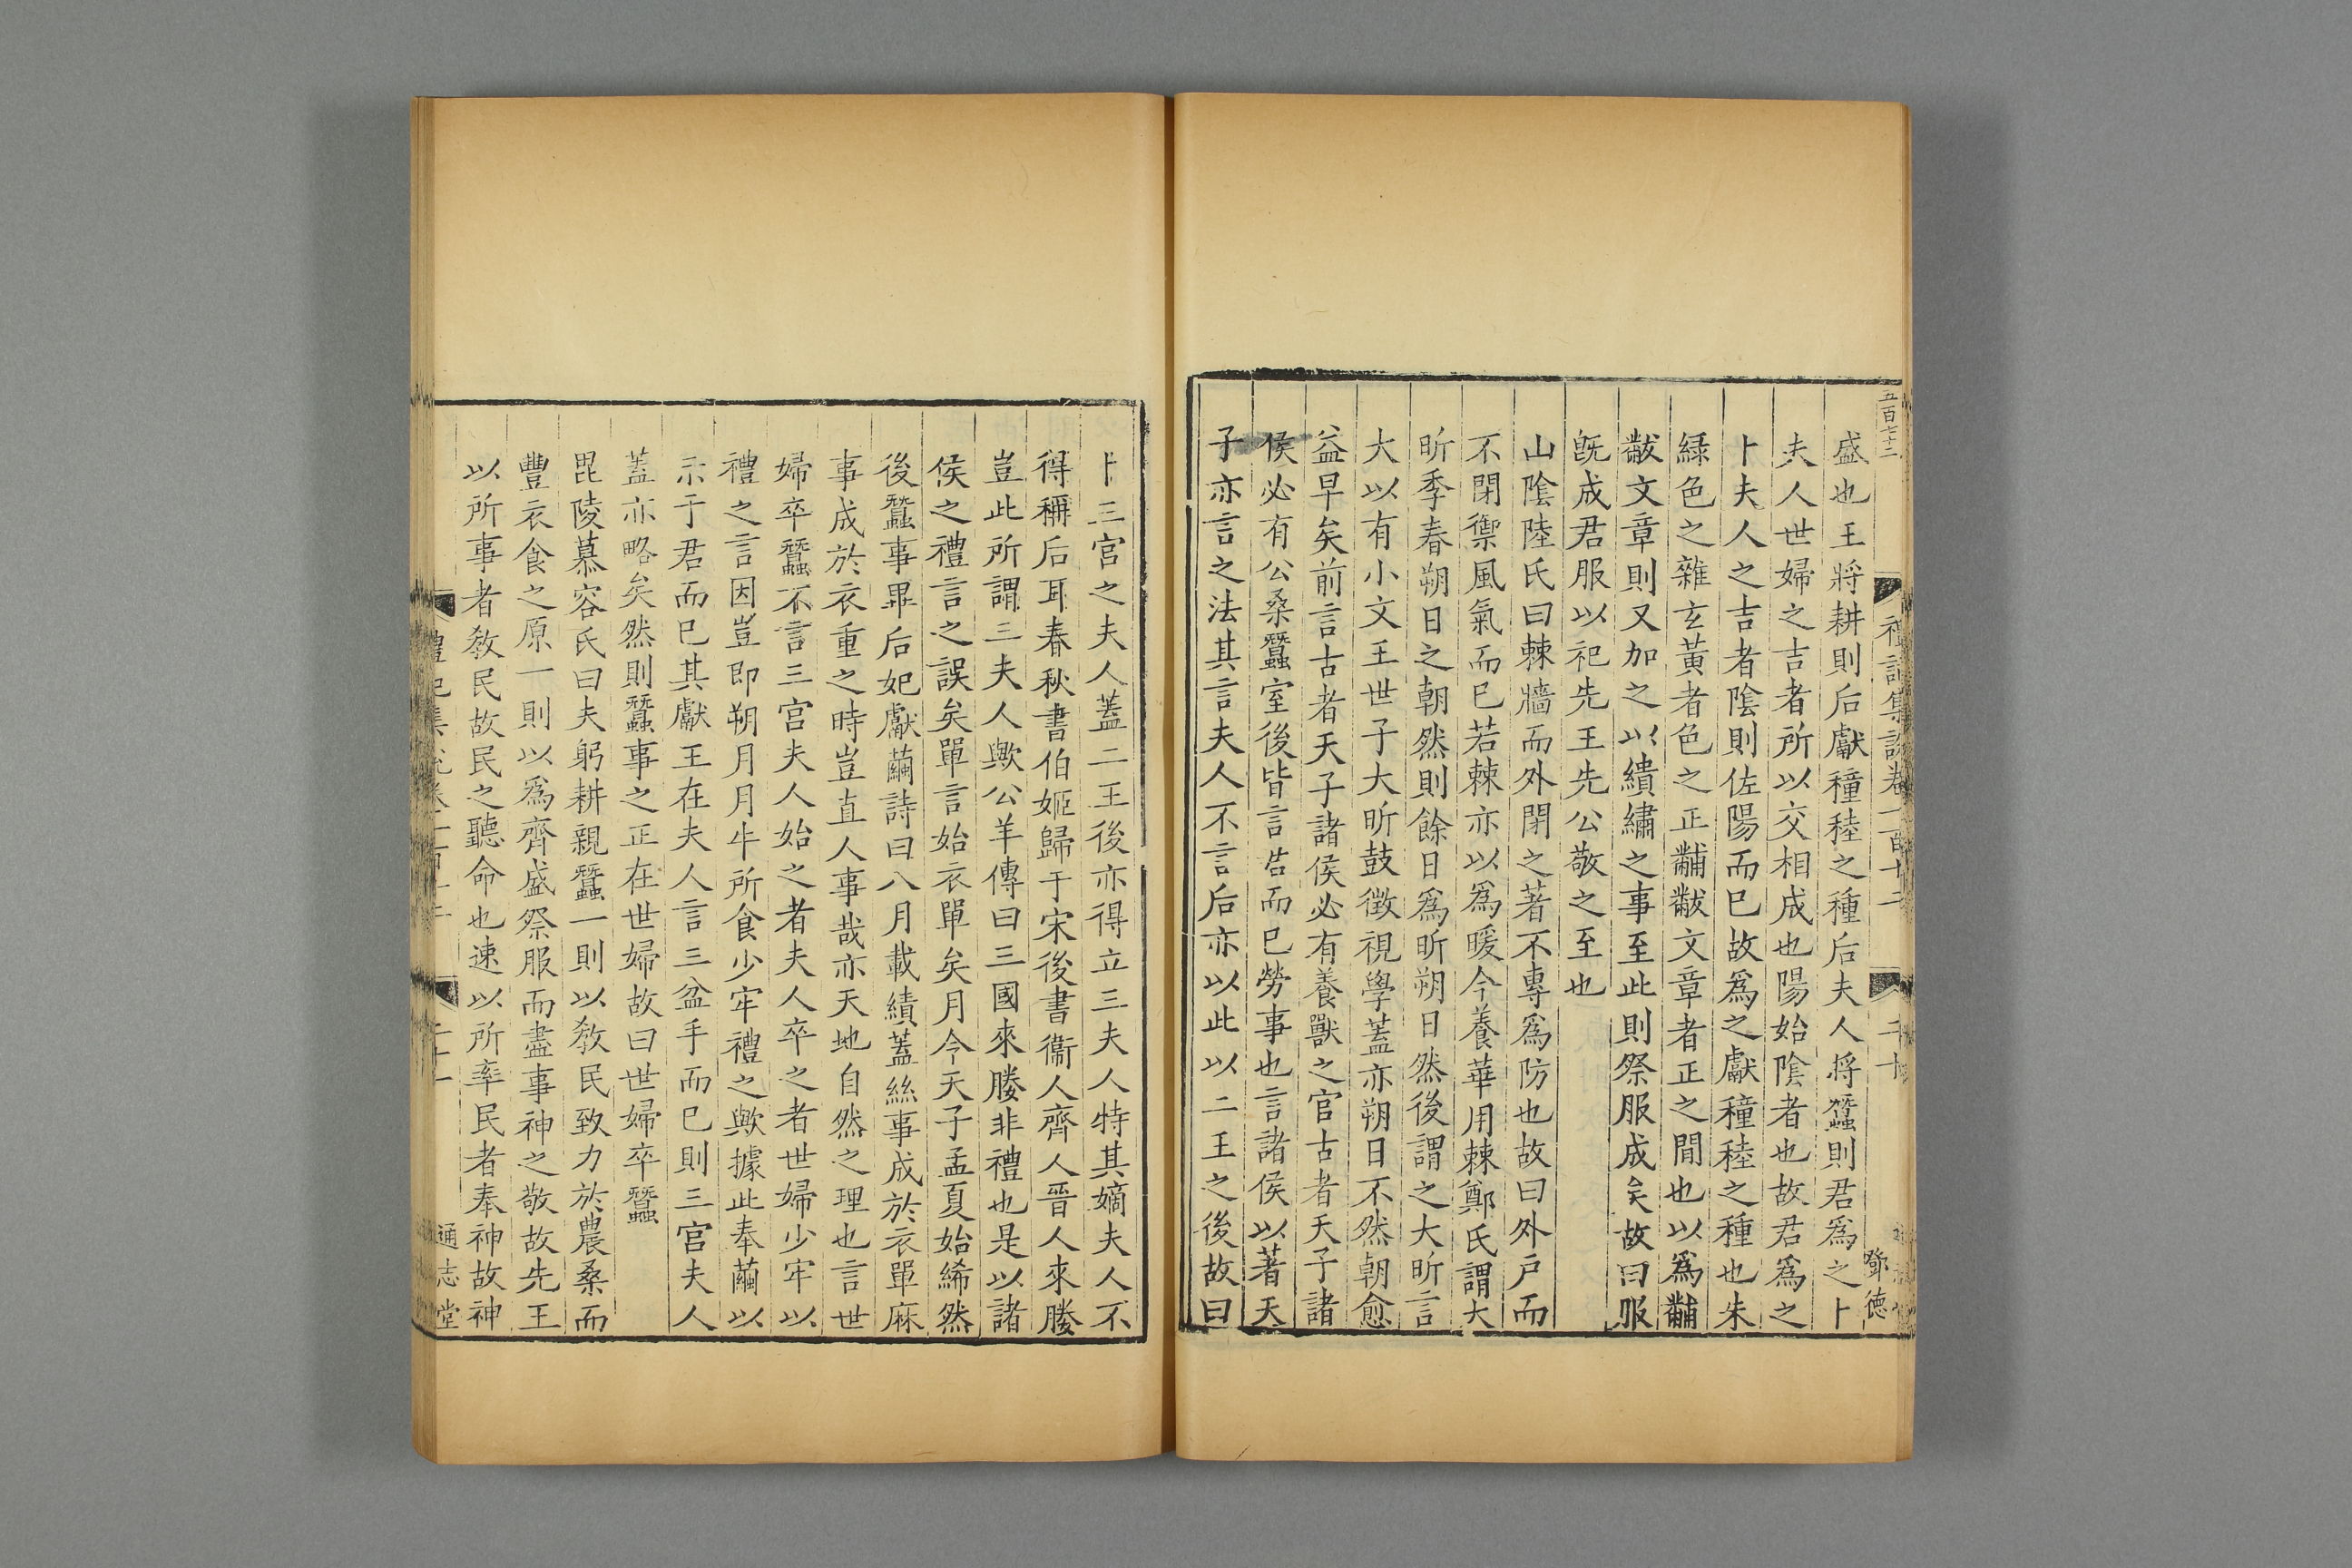 五百七十三
禮記集說卷一百十二
二十
鄧德
盛也王將耕則后獻穜稑之種后夫人將蠶則君爲之卜
夫人世婦之吉者所以交相成也陽始陰者也故君爲之
卜夫人之吉者陰則佐陽而已故爲之獻穜稑之種也朱
緑色之雜玄黃者色之正黼黻文章者正之間也以爲黼
黻文章則又加之以繢繡之事至此則祭服成矣故曰服
旣成君服以祀先王先公敬之至也
山陰陸氏曰棘牆而外閉之著不專爲防也故曰外戸而
不閉禦風氣而已若棘亦以爲暖今養華用棘鄭氏謂大
昕季春朔日之朝然則餘日爲昕朔日然後謂之大昕言
大以有小文王世子大昕鼓徴視學蓋亦朔日不然朝愈
益早矣前言古者天子諸侯必有養獸之官古者天子諸
侯必有公桑蠶室後皆言吿而已勞事也言諸侯以著天
子亦言之法其言夫人不言后亦以此以二王之後故曰
卜三宫之夫人蓋二王後亦得立三夫人特其嫡夫人不
得稱后耳春秋書伯姬歸于宋後書衞人齊人晉人來媵
豈此所謂三夫人歟公羊傳曰三國來媵非禮也是以諸
侯之禮言之誤矣單言始衣單矣月令天子孟夏始絺然
後蠶事畢后妃獻繭詩曰八月載績蓋絲事成於衣單麻
事成於衣重之時豈直人事哉亦天地自然之理也言世
婦卒蠶不言三宫夫人始之者夫人卒之者世婦少牢以
禮之言因豈即朔月月牛所食少牢禮之歟據此奉繭以
示于君而已其獻王在夫人言三盆手而已則三宫夫人
蓋亦略矣然則蠶事之正在世婦故曰世婦卒蠶
毘陵慕容氏曰夫躬耕親蠶一則以敎民致力於農桑而
豐衣食之原一則以爲齊盛祭服而盡事神之敬故先王
以所事者敎民故民之聽命也速以所率民者奉神故神
禮記集說卷一百十二
二十一
通志堂